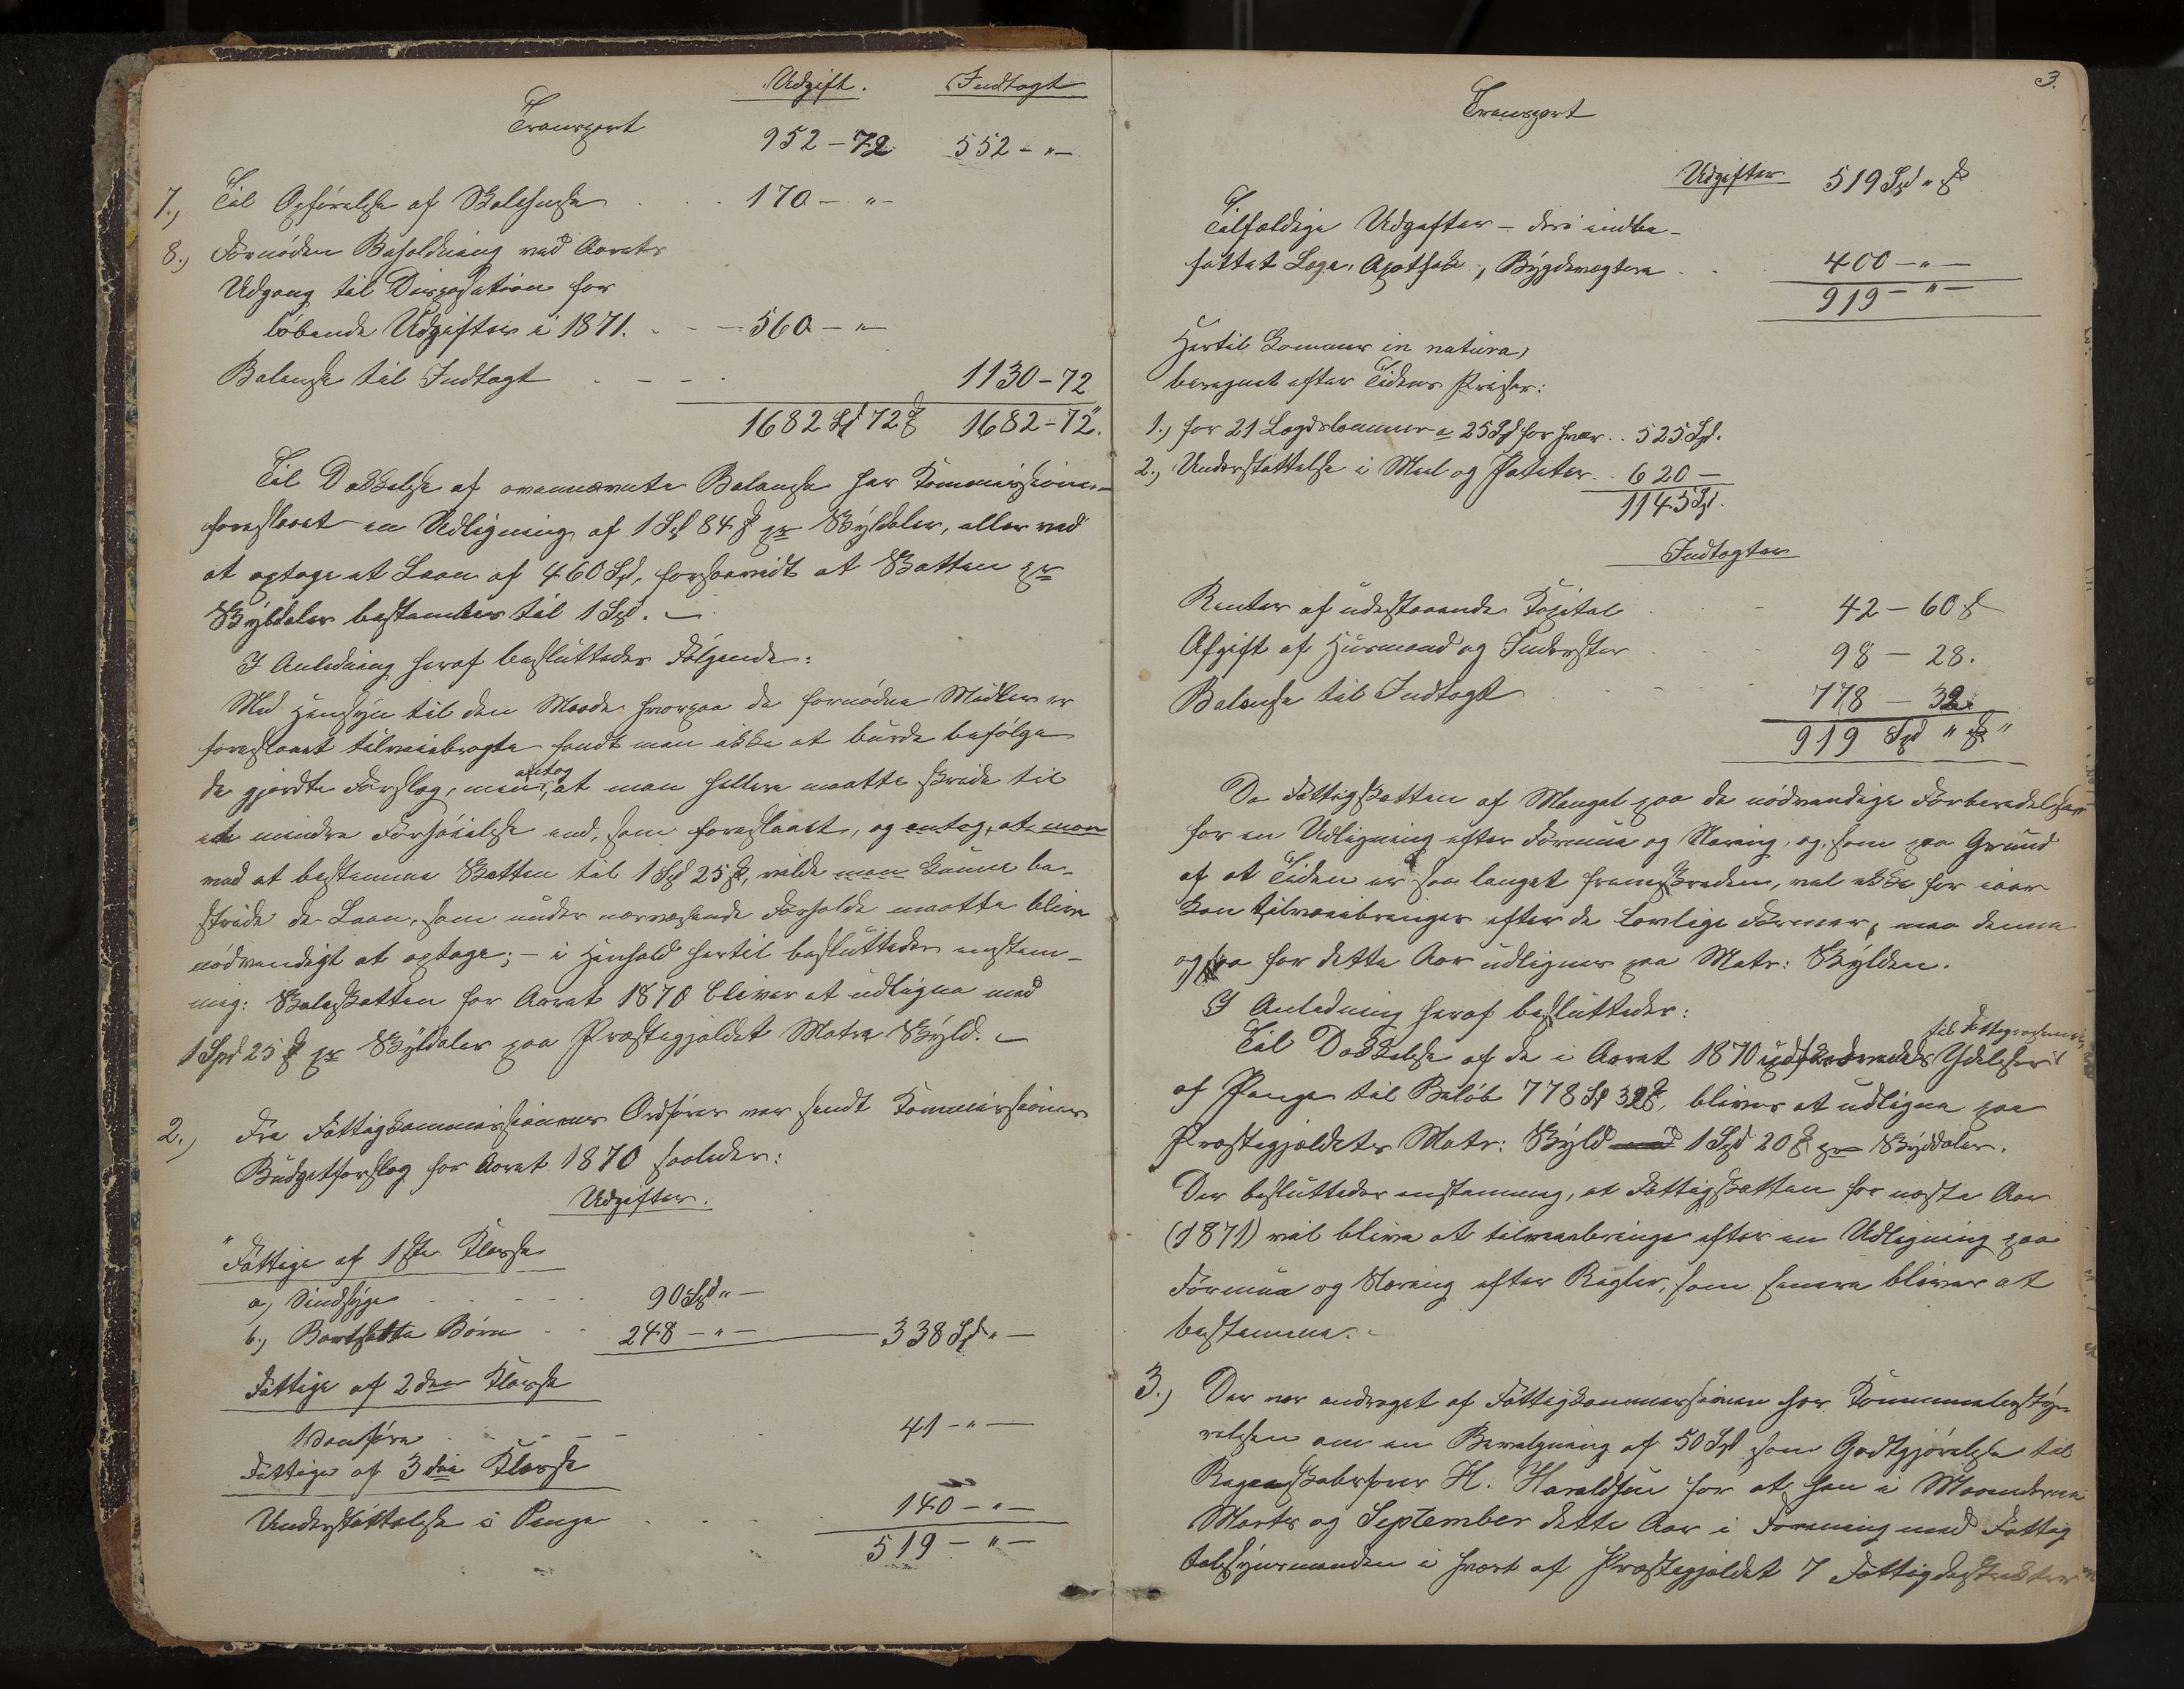 Udgift. Indtægt
Transport 952 - 72 552 - " -
7., Til Opførelse af Skolehuse . . . 170 - " -
8., Fornøden Beholdning ved Aarets
Udgang til Disposition for
løbende Udgifter i 1871. . - - 560 - " -
Balanse til Indtægt . - - . 1130 - 72
1682 Spd 72 ß 1682 - 72".
Til Dækkelse af ovennævnte Balanse har Kommissionen
foreslaaet en Udligning af 1 Spd 84 ß pr Skylddaler, eller ved
at optage et Laan af 460 Spd, forsaavidt at Skatten pr
Skylddaler bestemtes til 1 Spd. -
I Anledning heraf besluttedes Følgende:
Med Hensyn til den Maade hvorpaa de fornødne Midler er
foreslaaet tilveiebragte fandt man ikke at burde befølge
de gjorte Forslag, men antog, at man hellere maatte skride til
en mindre Forhøielse end, som foreslaaet, og antog, at man
ved at bestemme Skatten til 1 Spd 25 ß, vilde man kunne be-
stride de Laan, som under nærværende Forholde maatte blive
nødvendigt at optage; - i Henhold hertil besluttedes enstem-
mig: Skoleskatten for Aaret 1870 bliver at udligne med
1 Spd 25 ß pr Skylddaler paa Præstegjeldets Matr. Skyld. -
2., Fra Fattigkommissionens Ordfører var sendt Kommissionens
Budgetforslag for Aaret 1870 saaledes:
Udgifter.
"Fattige af 1ste Klasse
a, Sindsyge . - - - 90 Spd " -
b., Bortsatte Børn - - 248 - " - 338 Spd " -
Fattige af 2den Klasse
Vanføre . - - - . 41 - " -
Fattige af 3die Klasse
Understøttelse i Penge . . . 140 - " -
519 - " -
3.
Transport
Udgifter 519 Spd " ß
Tilfældige Udgifter - deri indbe-
fattet Læge, Apothek, Bygdevægtere . . 400 - " -
919 - " -
Hertil kommer in natura,
beregnet efter Tidens Priser:
1., for 21 Lægdslemmer a 25 Spd for hver . . 525 Spd.
2., Understøttelse i Meel og Poteter . . 620 -
1145 Spd.
Indtægter
Renter af udestaaende Kapital . . - 42 - 60 ß
Afgift af Husmænd og Inderster . - . 98 - 28.
Balanse til Indtægt . - - . 778 - 32.
919 Spd " ß "
Da Fattigskatten af Mangel paa de nødvendige Forberedelser
for en Udligning efter Formue og Næring, og, som paa Grund
af at Tiden er saa langt fremskreden, vel ikke for iaar
kan tilveiebringes efter de lovlige Former, maa denne
ogsaa for dette Aar udlignes paa Matr: Skylden.
I Anledning heraf besluttedes:
til Fattigvæsenet,
Til Dækkelse af de i Aaret 1870 Ydelser
af Penge til Beløb 778 Spd 32 ß, bliver at udligne paa
Præstegjeldets Matr: Skyld med 1 Spd 20 ß pr Skylddaler.
Der besluttedes enstemmig, at Fattigskatten for næste Aar
(1871) vil blive at tilveiebringe efter en Udligning paa
Formue og Næring efter Regler, som senere bliver at
bestemme. -
3., Der var andraget af Fattigkommissionen hos Kommunebesty-
relsen om en Bevilgning af 50 Spd som Godtgjørelse til
Regnskabsfører H. Haraldsen for at han i Maanederne
Marts og September dette Aar i Forening med Fattig
tilsynsmanden i hvert af Præstegjeldets 7 Fattigdistrikter